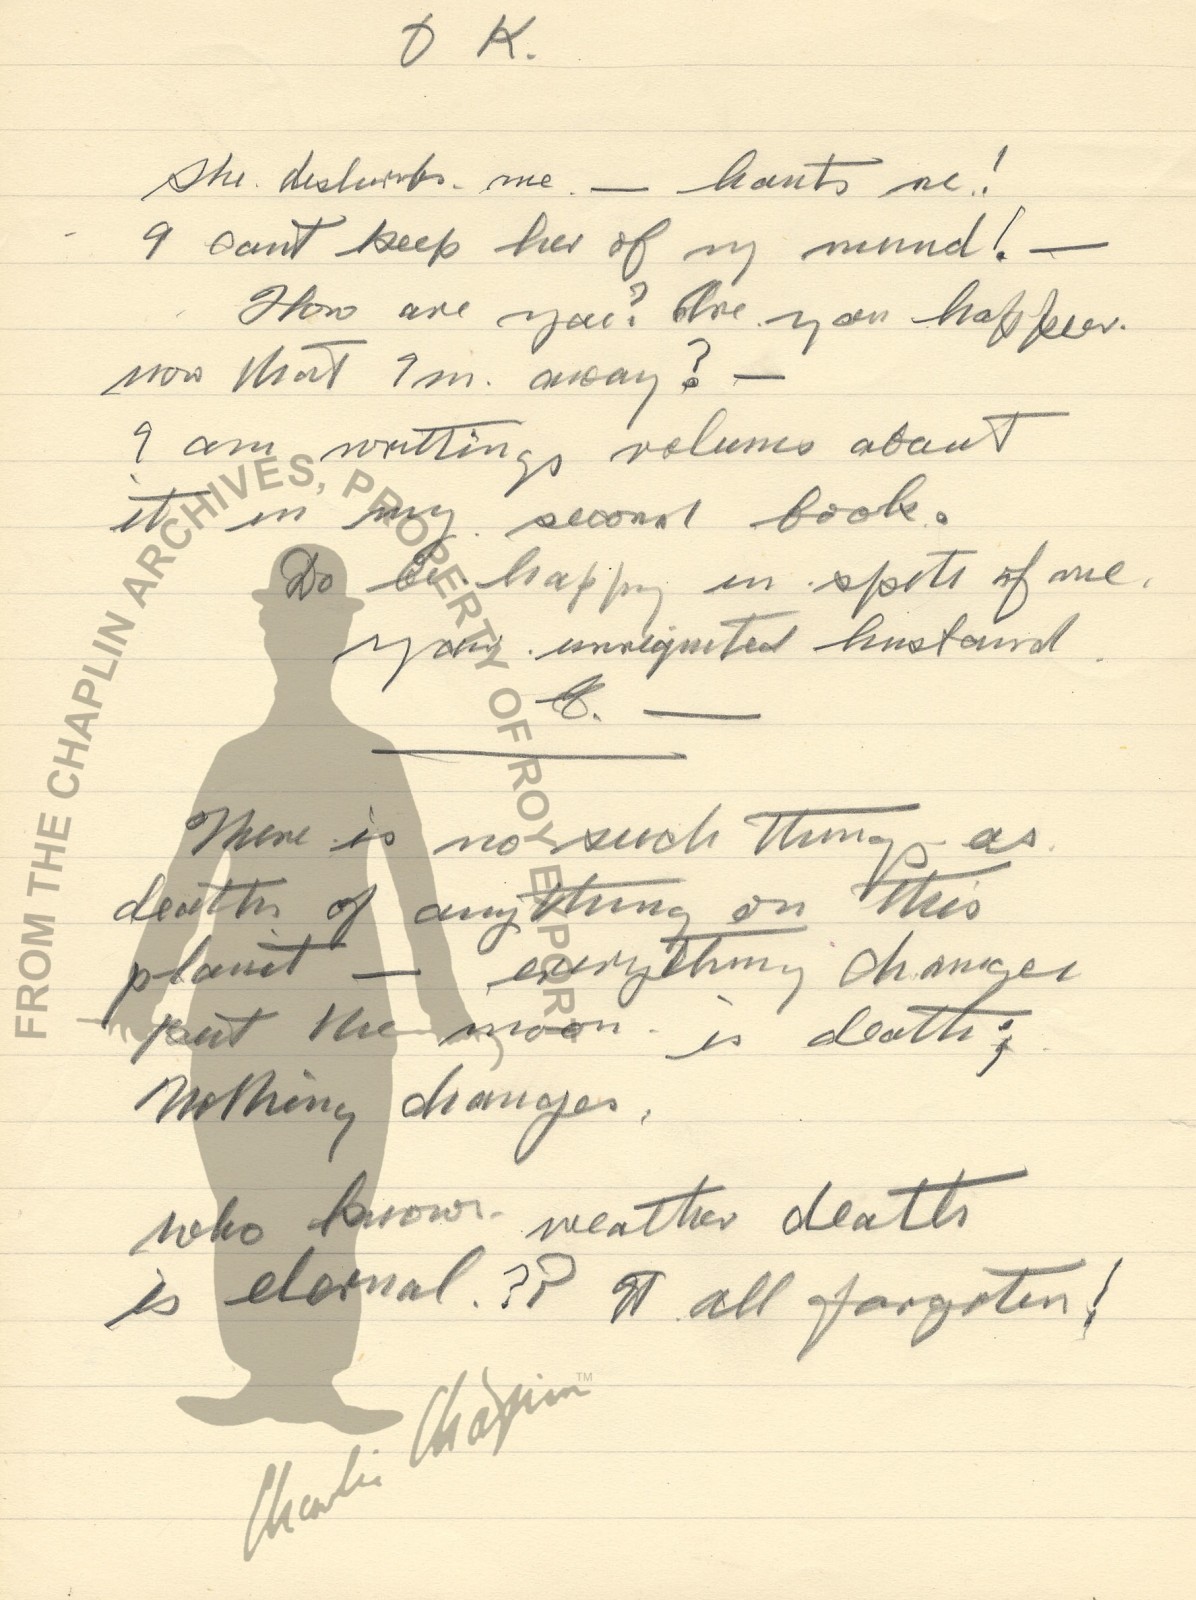 O K.
She. desturbs. me. — hants me.!
I cant keep her of my mind! —
How are you? Are you happier.
now that Im. away? —
I am writting volums about
it in my second book.
Do be happy in spite of me.
your unrequited husband.
C. —
There is no such thing as.
death of anything on this
planit — everything changes
put the moon. is death;
Nothing changes.
who knows. weather death
is eternal.?? It all forgoten!
FROM THE CHAPLIN ARCHIVES, PROPERTY OF ROY EXPORT
Charlie Chaplin™